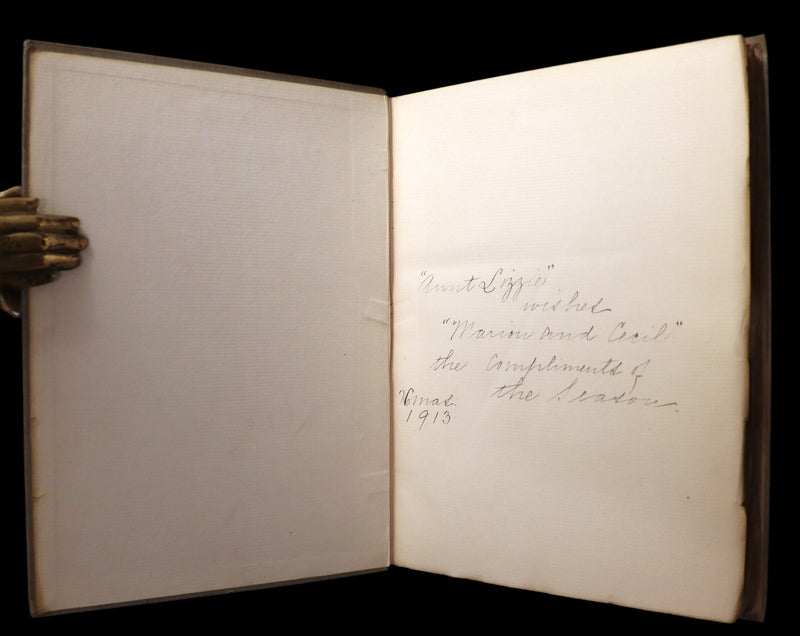 "Aunt Lizzie"
wishes
"Marion and Cecil"
the Compliments of
the Season.
Xmas.
1913